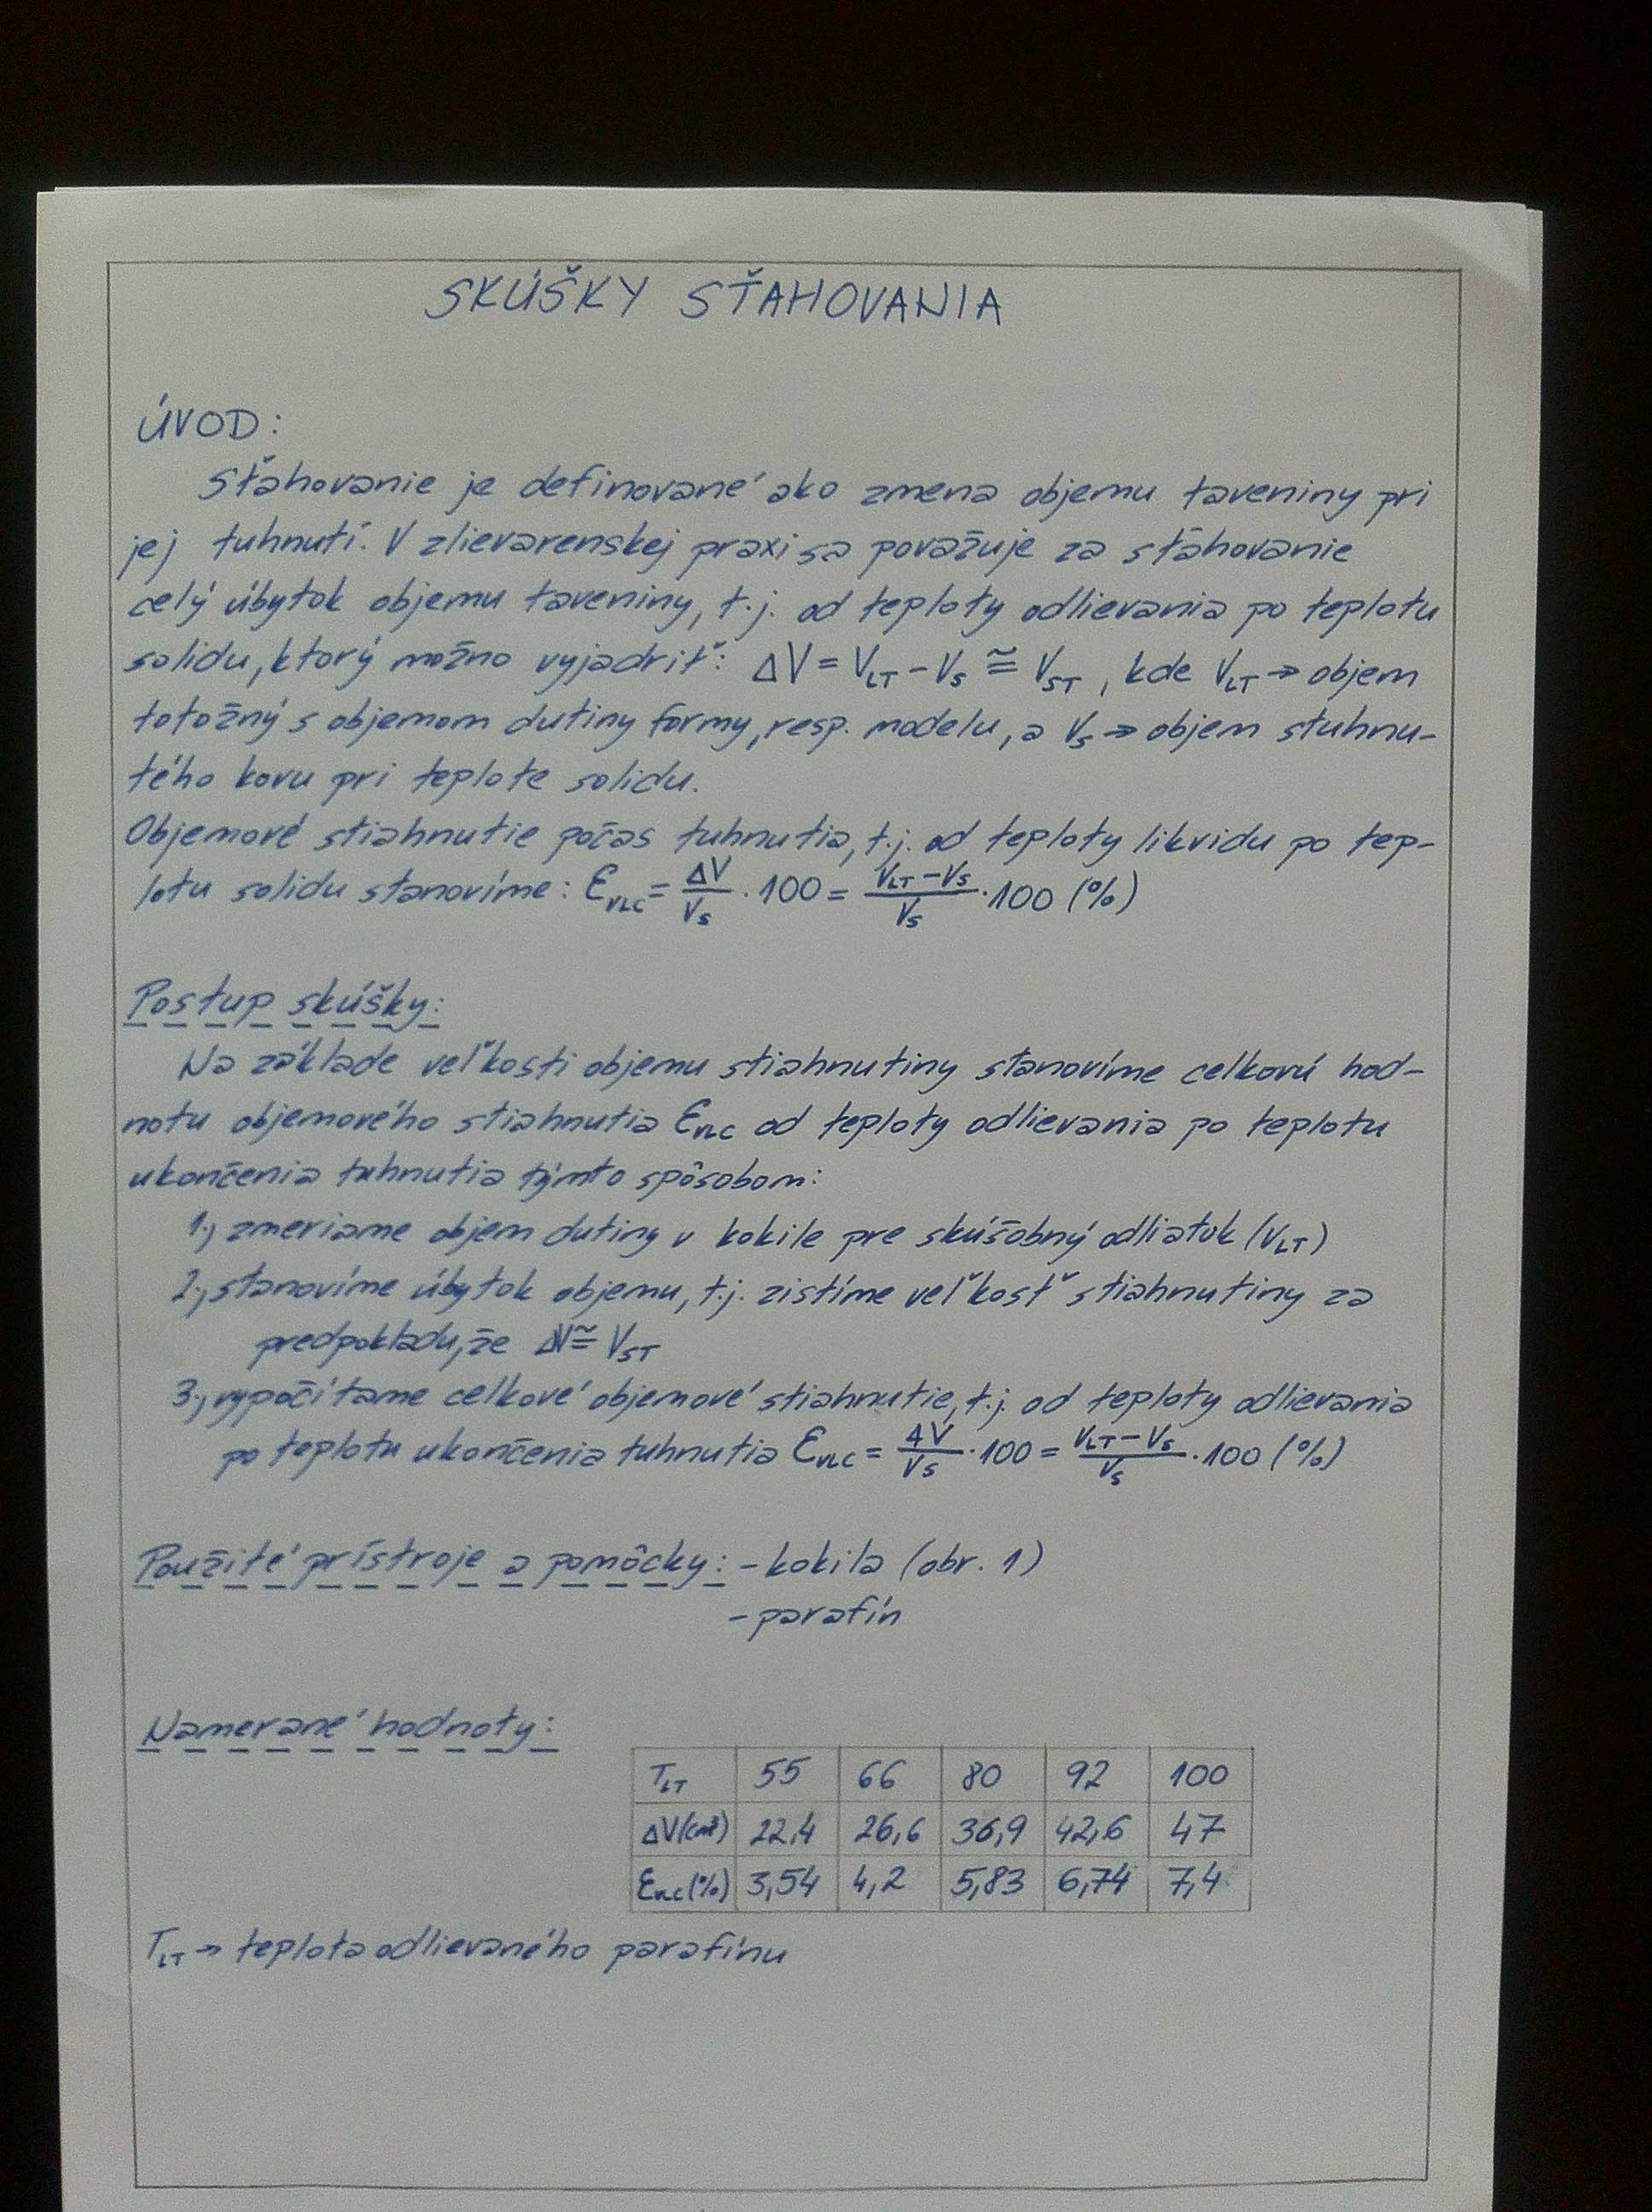 SKÚŠKY SŤAHOVANIA
ÚVOD:
Sťahovanie je definované ako zmena objemu taveniny pri
jej tuhnutí. V zlievarenskej praxi sa považuje za sťahovanie
celý úbytok objemu taveniny, t.j. od teploty odlievania po teplotu
solidu, ktorý možno vyjadriť: ΔV = V_LT - V_S ≅ V_ST, kde V_LT → objem
totožný s objemom dutiny formy, resp. modelu, a V_S → objem stuhnu-
tého kovu pri teplote solidu.
Objemové stiahnutie počas tuhnutia, t.j. od teploty likvidu po tep-
lotu solidu stanovíme: ε_VLC = ΔV/V_S · 100 = (V_LT - V_S)/V_S · 100 (%)
Postup skúšky:
Na základe veľkosti objemu stiahnutiny stanovíme celkovú hod-
notu objemového stiahnutia ε_VLC od teploty odlievania po teplotu
ukončenia tuhnutia týmto spôsobom:
1., zmeriame objem dutiny v kokile pre skúšobný odliatok (V_LT)
2., stanovíme úbytok objemu, t.j. zistíme veľkosť stiahnutiny za
predpokladu, že ΔV ≅ V_ST
3., vypočítame celkové objemové stiahnutie, t.j. od teploty odlievania
po teplotu ukončenia tuhnutia ε_VLC = ΔV/V_S · 100 = (V_LT - V_S)/V_S · 100 (%)
Použité prístroje a pomôcky: - kokila (obr. 1)
- parafín
Namerané hodnoty:
T_LT 55 66 80 92 100
ΔV(cm³) 22,4 26,6 36,9 42,6 47
ε_VLC(%) 3,54 4,2 5,83 6,74 7,4
T_LT → teplota odlievaného parafínu